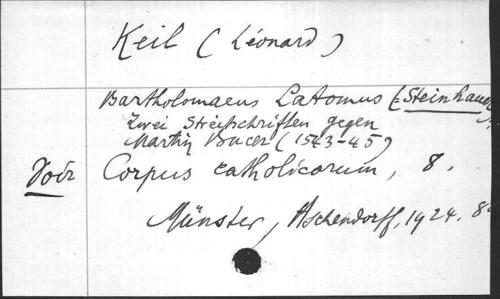 Keil (Léonard)
Bartholomaeus Latomus (= Steinhauer
Zwei Streitschriften gegen
Martin Bucer (1543-45)
Voir Corpus catholicorum, 8.
Münster, Aschendorff, 1924. 8°